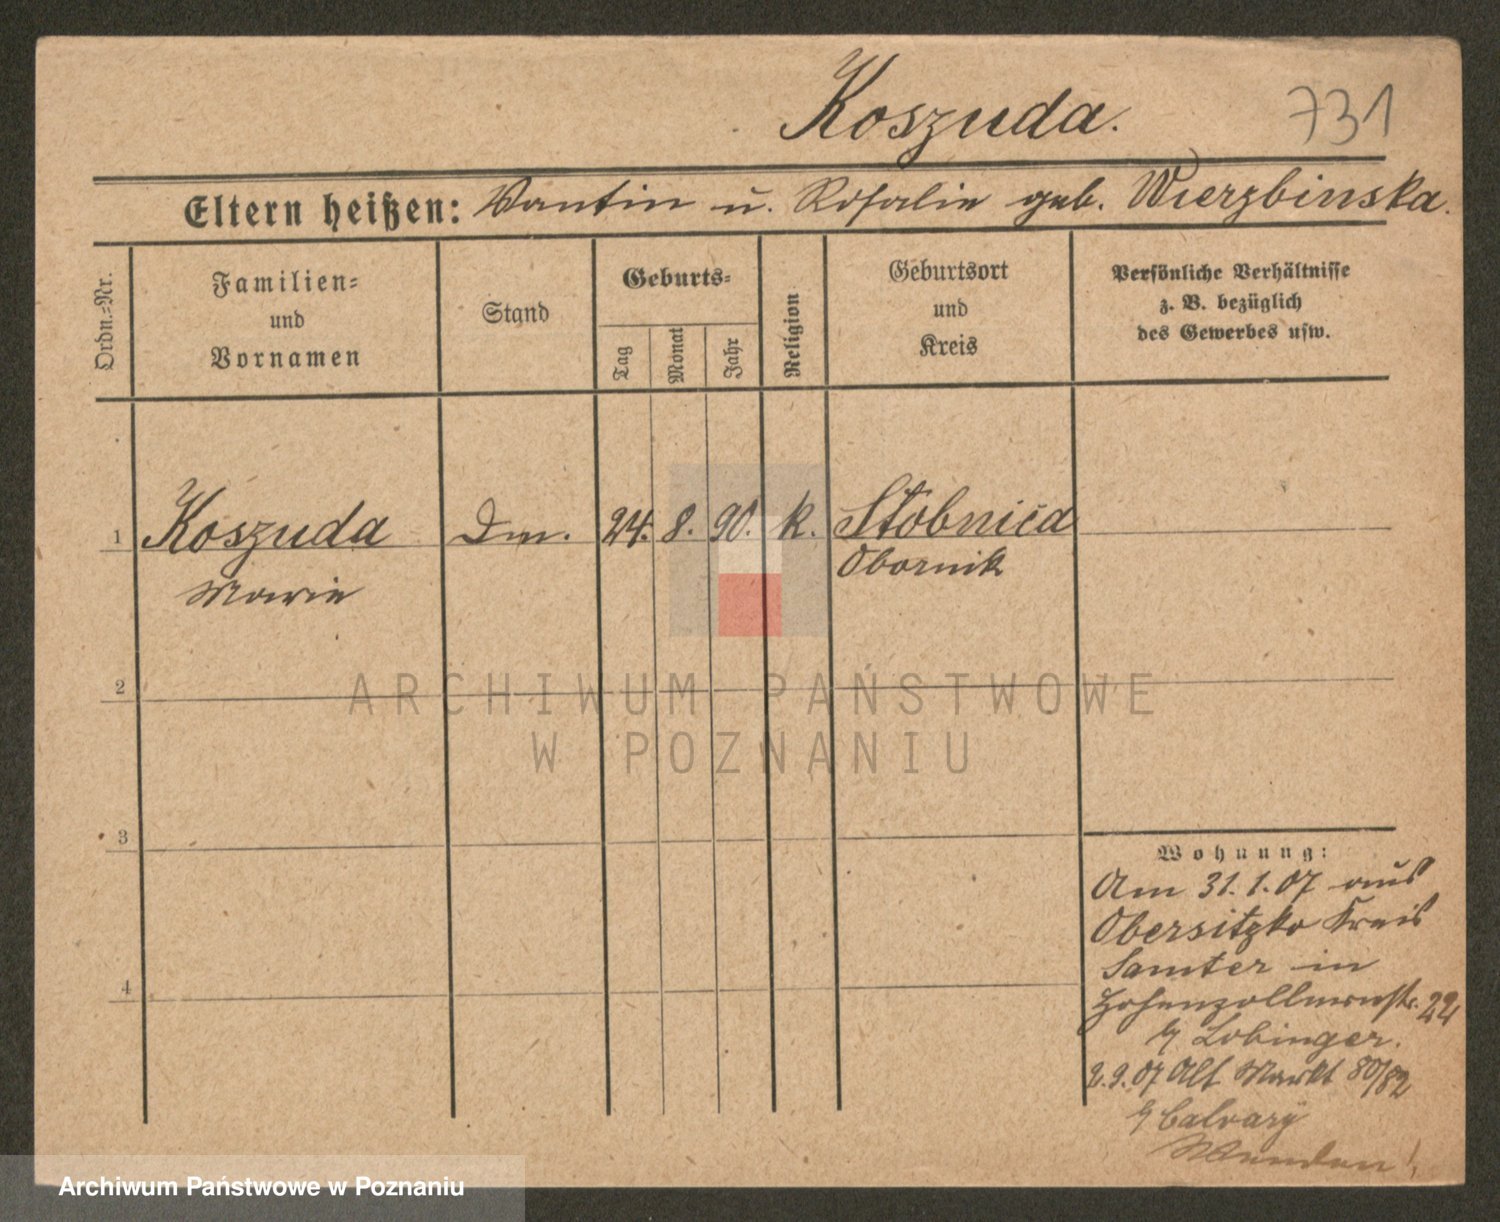 Koszuda. 731
Eltern heißen: Vantin u. Rosalie geb. Wierzbinska.
Ordn.=Nr.
Familien=
und
Vornamen
Stand
Geburts=
Tag
Monat
Jahr
Religion
Geburtsort
und
Kreis
Persönliche Verhältnisse
z. B. bezüglich
des Gewerbes usw.
1 Koszuda 24. 8. 90. k. Stobnica
Marie Obornik
2
ARCHIWUM PAŃSTWOWE
W POZNANIU
3
4
Wohnung:
Am 31.1.07 aus
Obersitzko Kreis
Samter in
Hohenzollernstr. 22
b/ Lobinger.
2.9.07 Alt Markt 80/82
b/ Calvary
Archiwum Państwowe w Poznaniu